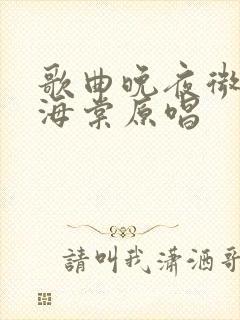 歌曲晚夜微
海棠原唱
請叫我瀟洒哥